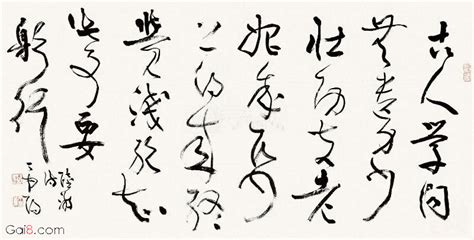 古人学问
无遗力少
壮功夫老
始成纸
上得来终
觉浅绝知
此事要
躬行
陆游
诗
Gai8.com